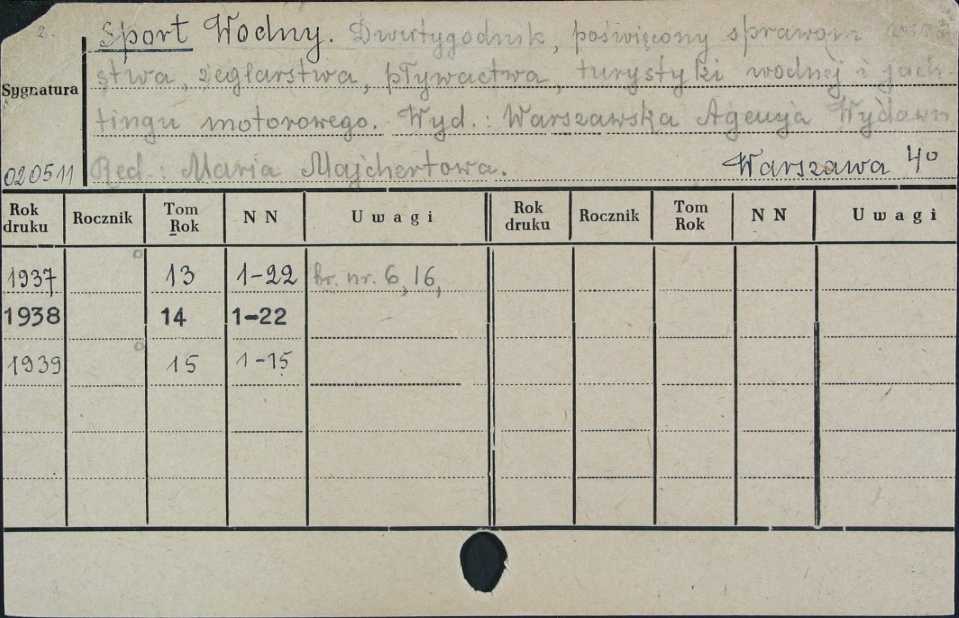 2.
Sport Wodny. Dwutygodnik, poświęcony sprawom
stwa, żeglarstwa, pływactwa, turystyki wodnej i jach-
Sygnatura
tingu motorowego. Wyd.: Warszawska Agencja Wydawn
020511 Red.: Maria Majchertowa. Warszawa 4°
Rok druku Rocznik Tom Rok N N Uwagi Rok druku Rocznik Tom Rok N N Uwagi
1937 13 1-22 br. nr. 6, 16,
1938 14 1-22
1939 15 1-15